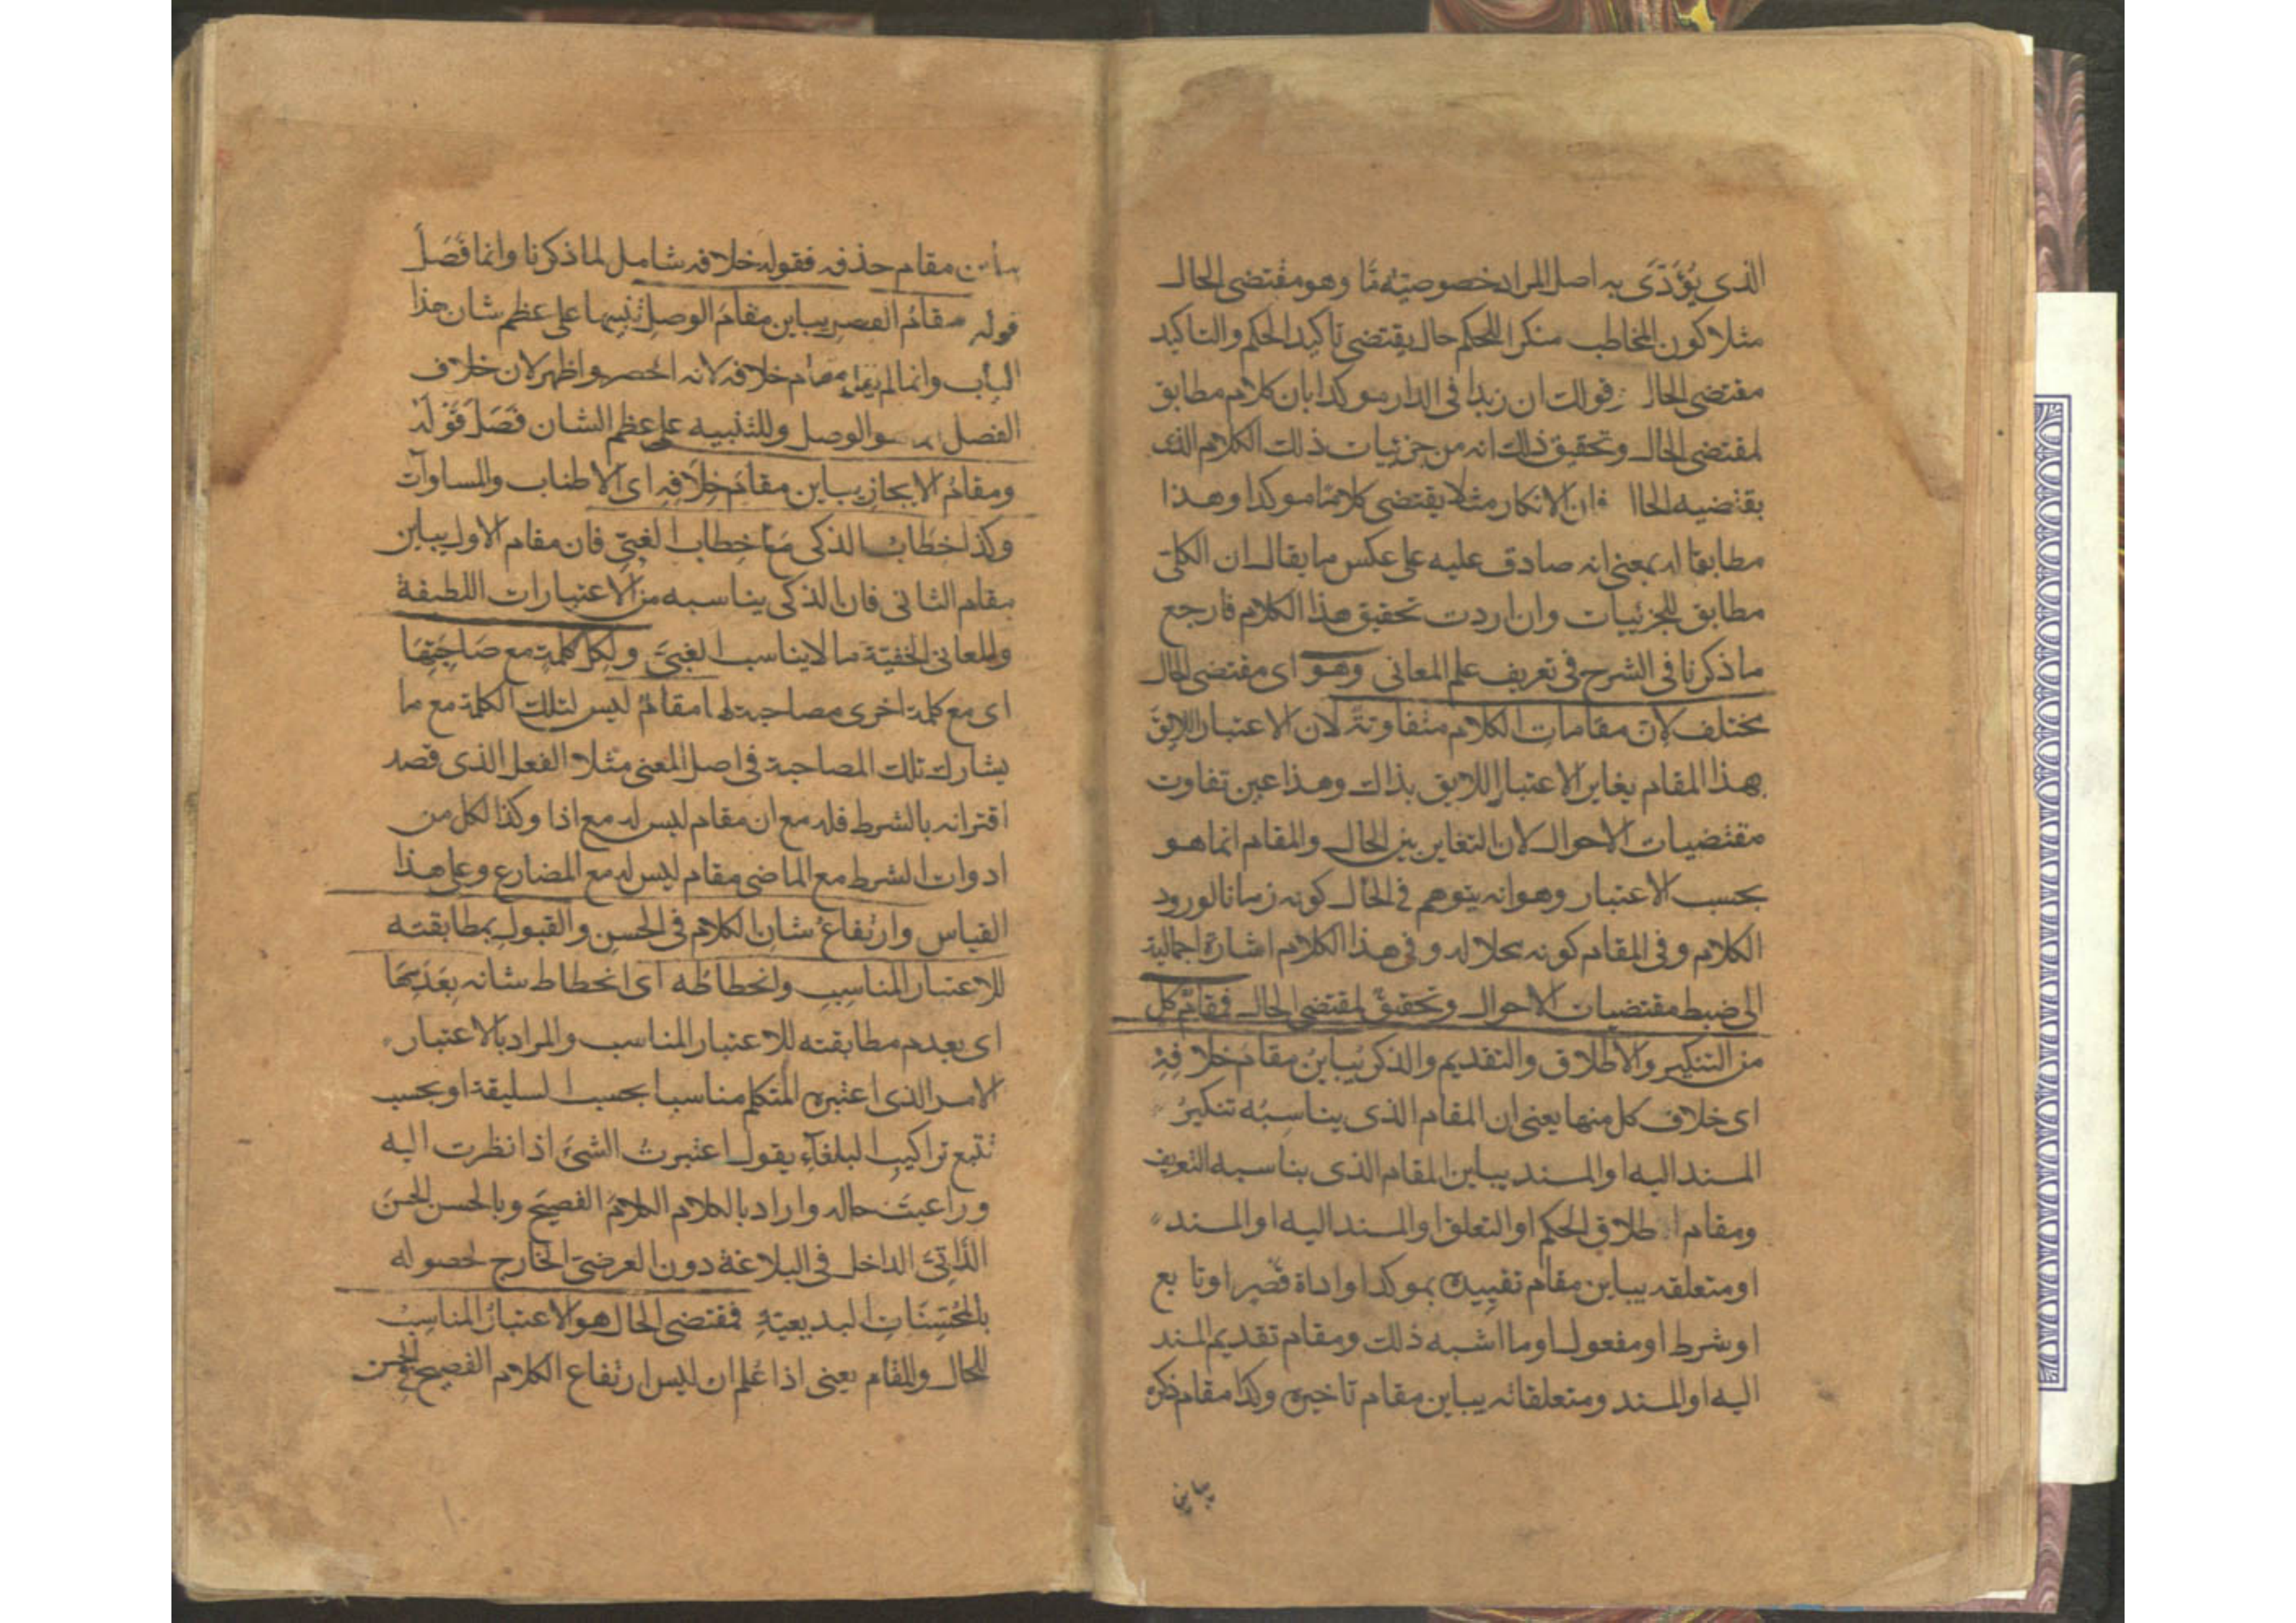 الذى يُؤَدّى به اصل المراد خصوصيّة مّا وهو مقتضى الحال
مثلا كون المخاطب منكرا للحكم حال يقتضى تاكيد الحكم والتاكيد
مقتضى الحال وقولك ان زيدا فى الدار موكدا بان كلام مطابق
لمقتضى الحال وتحقيق ذلك انه من جزئيات ذلك الكلام الذى
يقتضيه الحال فان الانكار مثلا يقتضى كلاما موكدا وهذا
مطابقا له بمعنى انه صادق عليه على عكس ما يقال ان الكلى
مطابق للجزئيات وان اردت تحقيق هذا الكلام فارجع
ما ذكرنا فى الشرح فى تعريف علم المعانى وهو اى مقتضى الحال
مختلف لان مقامات الكلام متفاوتة لان الاعتبار اللايق
بهذا المقام يغاير الاعتبار اللايق بذاك وهذا عين تفاوت
مقتضيات الاحوال لان التغاير بين الحال والمقام انما هو
بحسب الاعتبار وهو انه يتوهم فى الحال كونه زمانا لورود
الكلام وفى المقام كونه محلا له وفى هذا الكلام اشارة اجمالية
الى ضبط مقتضيات الاحوال وتحقيق لمقتضى الحال فمقام كل
من التنكير والاطلاق والتقديم والذكر يُباينُ مقامَ خلافِهِ
اى خلاف كل منها يعنى ان المقام الذى يناسبُه تنكيرُ
المسند اليه او المسند يباين المقام الذى يناسبه التعريف
ومقام اطلاق الحكم او التعلق او المسند اليه او المسند
او متعلقه يباين مقام تقييده بموكد او اداة قصر او تابع
او شرط او مفعول او ما اشبه ذلك ومقام تقديم المسند
اليه او المسند ومتعلقاته يباين مقام تاخيره وكذا مقام ذكره
يباين
يباين مقام حذفه فقوله خلافه شامل لما ذكرنا وانما فَصَلَ
قوله مقامُ الفصلِ يباين مقامَ الوصلِ تنبيها على عظم شان هذا
الباب وانما لم يقل مقام خلافه لانه اخصر واظهر لان خلاف
الفصل هو الوصل وللتنبيه على عظم الشان فَصَلَ قَوْلَهُ
ومقامُ الايجازِ يباين مقامَ خِلَافِهِ اى الاطناب والمساوات
وكذا خطابُ الذكى مع خطاب الغبىّ فان مقام الاول يباين
مقام الثانى فان الذكى يناسبه من الاعتبارات اللطيفة
والمعانى الخفيّة ما لا يناسب الغبىَّ ولكل كلمةٍ مع صَاحِبَتِهَا
اى مع كلمة اخرى مصاحبة لها مقامٌ ليس لتلك الكلمة مع ما
يشارك تلك المصاحبة فى اصل المعنى مثلا الفعل الذى قصد
اقترانه بالشرط فله مع ان مقام ليس له مع اذا وكذا لكل من
ادوات الشرط مع الماضى مقام ليس له مع المضارع وعلى هذا
القياس وارتفاعُ شانِ الكلام فى الحسن والقبول بمطابقته
للاعتبار المناسِبِ وانحطاطُه اى انحطاط شانه بِعَدَمِهَا
اى بعدم مطابقته للاعتبار المناسب والمراد بالاعتبار
الامر الذى اعتبره المتكلم مناسبا بحسب السليقة او بحسب
تتبع تراكيب البلغآءِ يقول اعتبرتُ الشئَ اذا نظرت اليه
وراعيتَ حاله واراد بالكلام الكلامَ الفصيحَ وبالحسن الحسنَ
الذّاتىَّ الداخل فى البلاغة دون العرضىّ الخارج لحصوله
بالمُحَسِّنَاتِ البديعيّةِ فمقتضى الحال هو الاعتبارُ المناسِبُ
للحال والمقام يعنى اذا عُلم ان ليس ارتفاع الكلام الفصيح فى الحسن